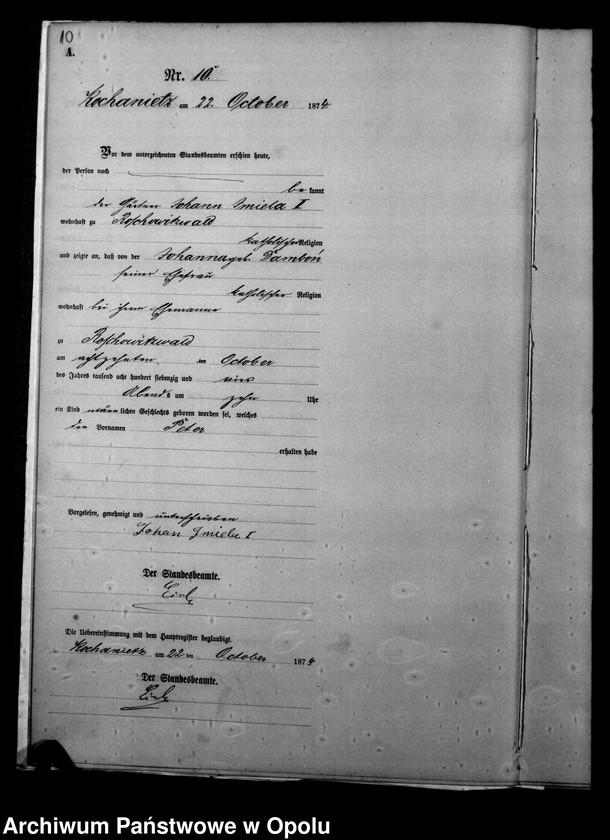 10
A.
Nr. 10
Kochanietz am 22. October 1874
Vor dem unterzeichneten Standesbeamten erschien heute,
der Person nach
bekannt
der Gärtner Johann Smiela II
wohnhaft zu Roschowitzwald
katholischer Religion
und zeigte an, daß von der Johanna geb. Dambon
seiner Ehefrau
katholischer Religion
wohnhaft bei ihrem Ehemanne
zu Roschowitzwald
am achtzehnten im October
des Jahres tausend acht hundert siebenzig und vier
Abends um zehn Uhr
ein Kind männlichen Geschlechts geboren worden sei, welches
den Vornamen Peter
erhalten habe
Vorgelesen, genehmigt und unterschrieben
Johan Smiela
Der Standesbeamte.
Die Uebereinstimmung mit dem Hauptregister beglaubigt.
Kochanietz am 22 ten October 1874
Der Standesbeamte.
Archiwum Państwowe w Opolu